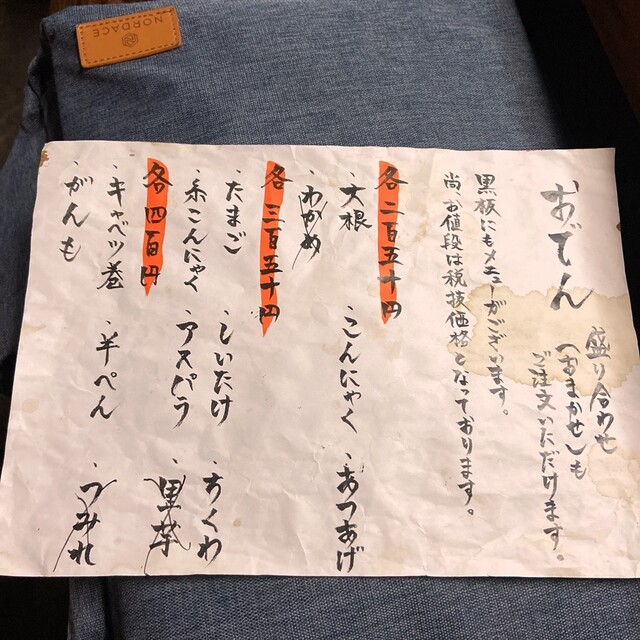 NORDACE
おでん
盛り合わせ
(おまかせ)も
ご注文いただけます。
黒板にもメニューがございます。
尚お値段は税抜価格となっております。
各二百五十円
・大根 ・こんにゃく ・あつあげ
・わかめ
各三百五十円
・たまご ・しいたけ ・ちくわ
・糸こんにゃく ・アスパラ ・里芋
各四百円
・キャベツ巻 ・半ぺん ・つみれ
・がんも